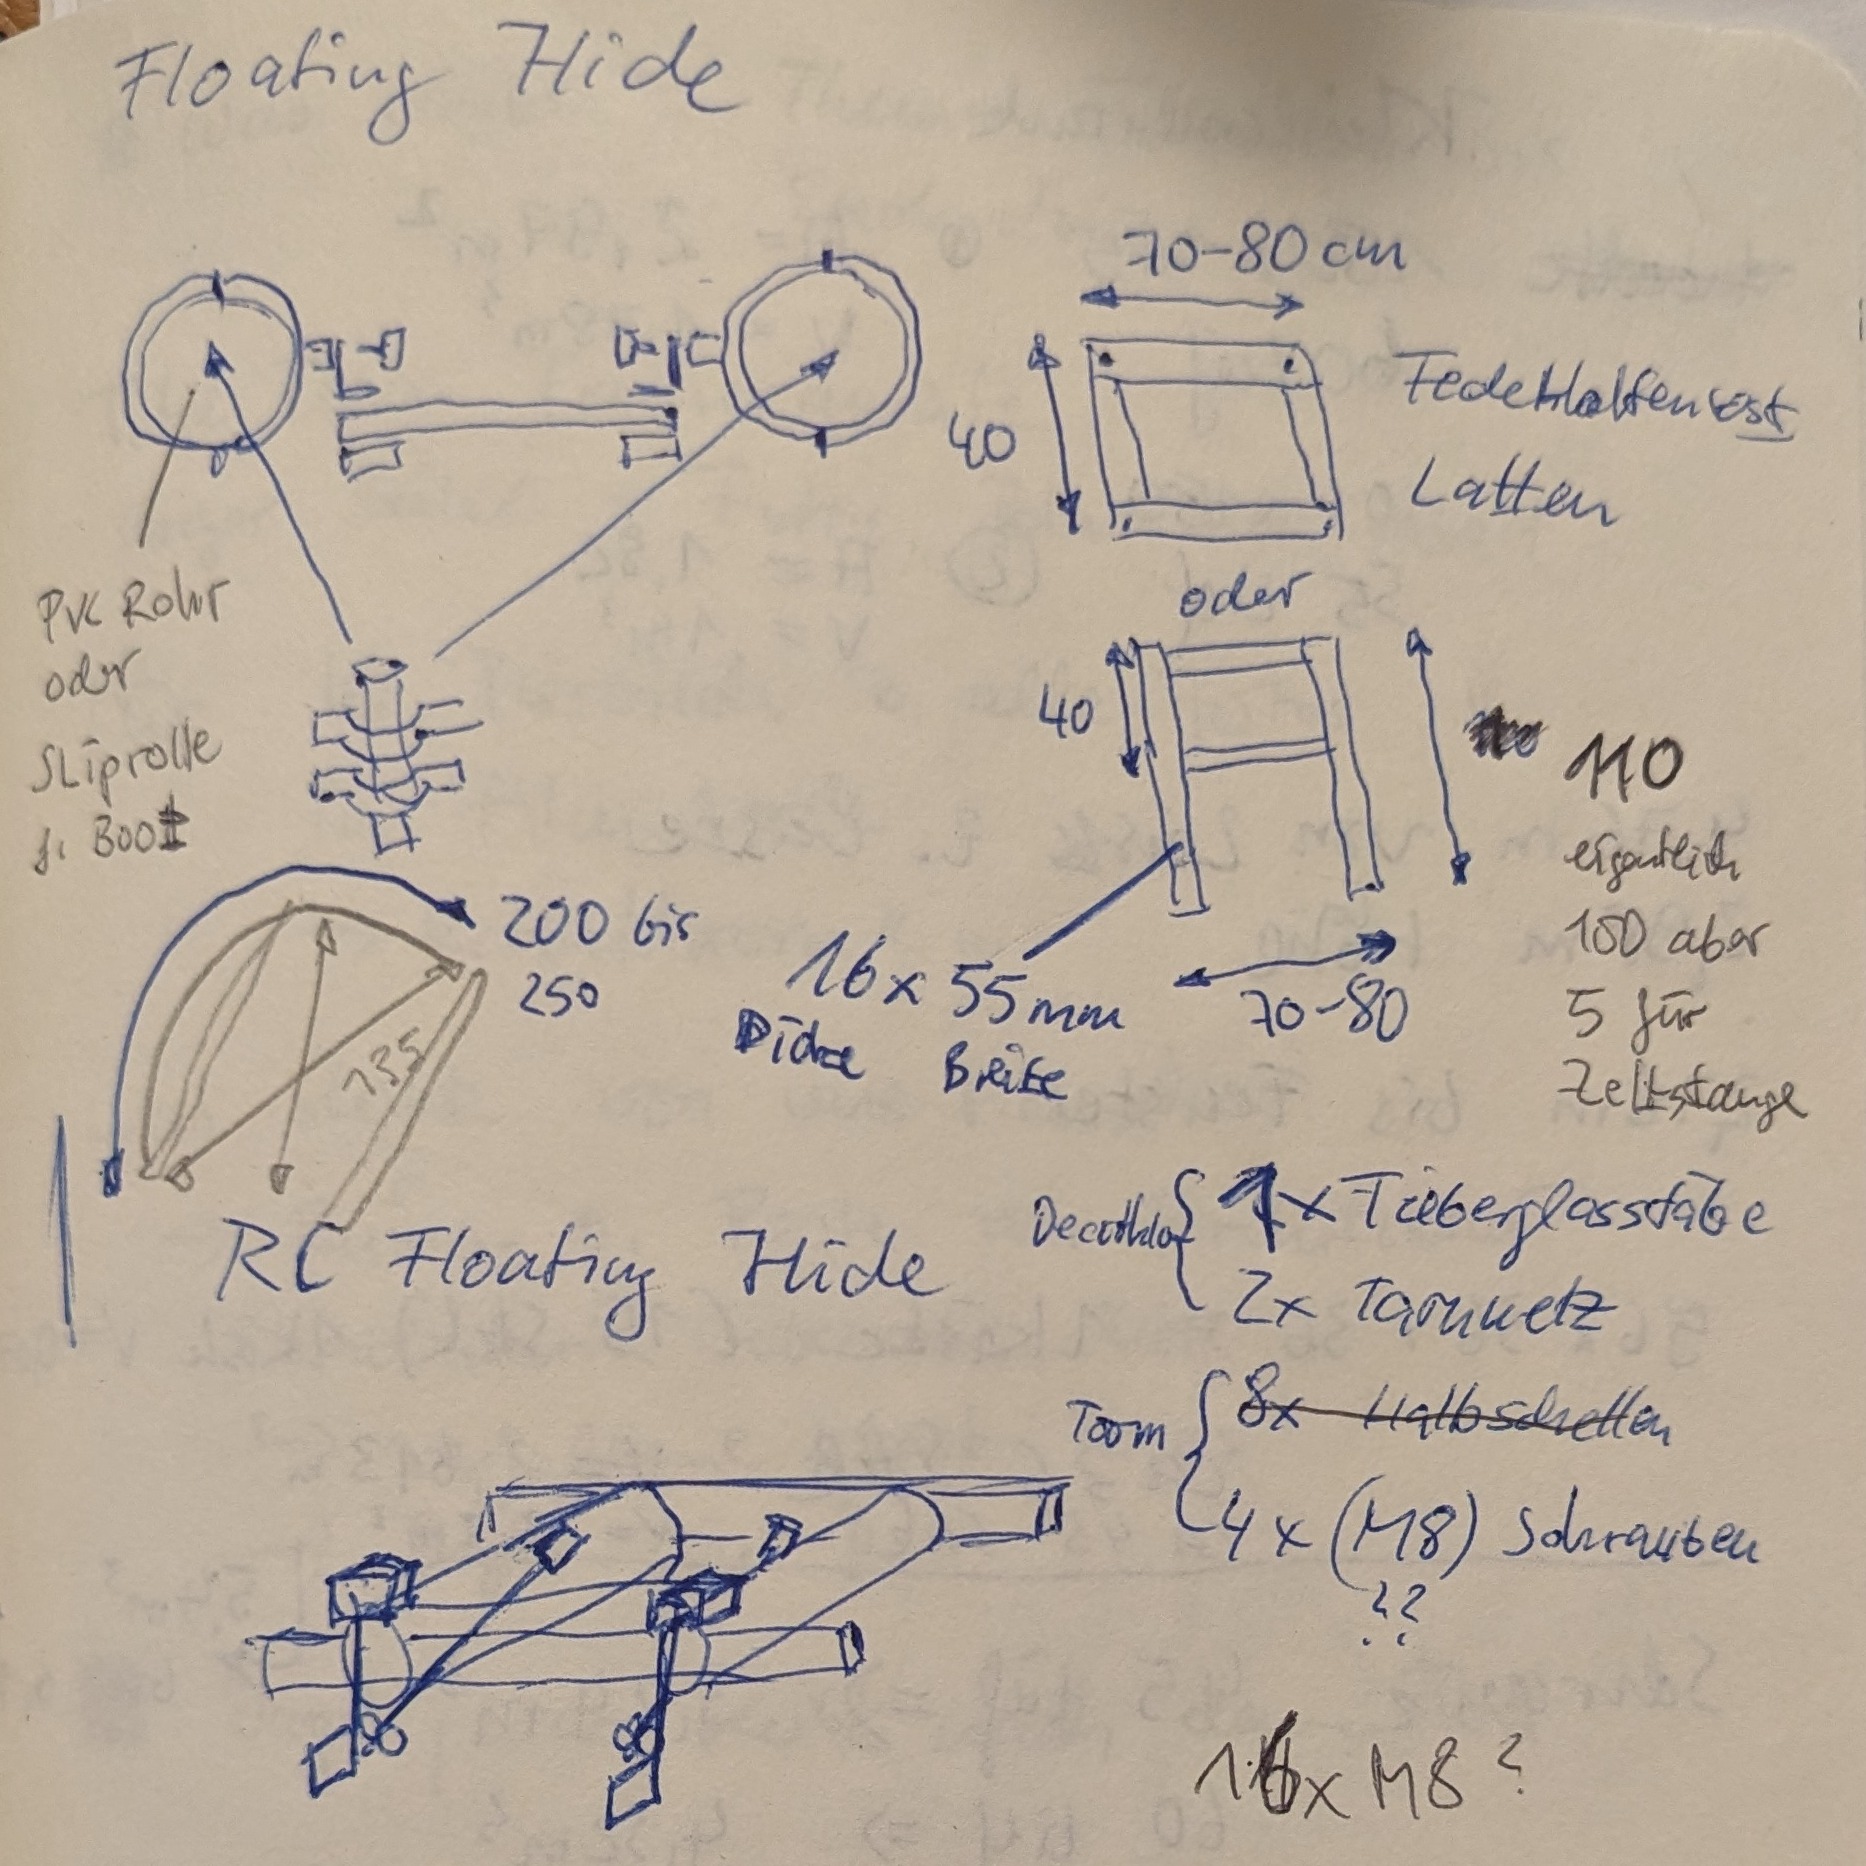 Floating Hide
70-80 cm
40
Latten
oder
PVC Rohr
oder
Sliprolle
f. Boot
40
110
eigentlich
100 aber
5 für
Zeltstange
200 bis
250
135
16 x 55 mm
Dicke Breite
70-80
RC Floating Hide
1x Fieberglasstäbe
2x Tarnnetz
Toom
8x Halbschellen
4x (M8) Schrauben
??
16x M8?